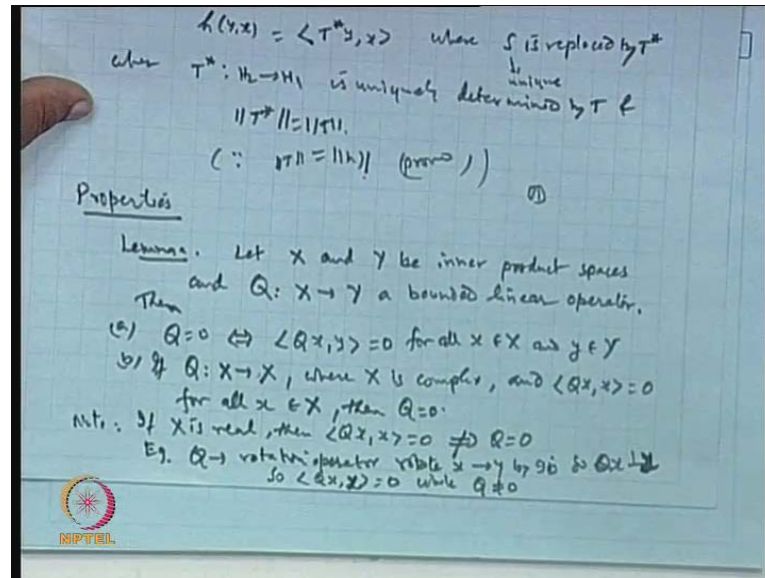 h(y,x) = <T*y, x> where S is replaced by T*
unique
when T* : H₂→H₁ is uniquely determined by T &
||T*|| = ||T||.
(∵ ||T|| = ||h|| (proved))
Properties
Lemma. Let X and Y be inner product spaces
and Q: X→Y a bounded linear operator.
Then
(a) Q=0 ⇔ <Qx,y> =0 for all x ∈ X and y ∈ Y
b) If Q: X→X, where X is complex, and <Qx,x> =0
for all x ∈ X, then Q=0.
Note: If X is real, then <Qx,x> =0 ⇏ Q=0
Eg. Q→ rotation operator rotate x→y by 90 so Qx⊥x
so <Qx,x> =0 while Q≠0
NPTEL